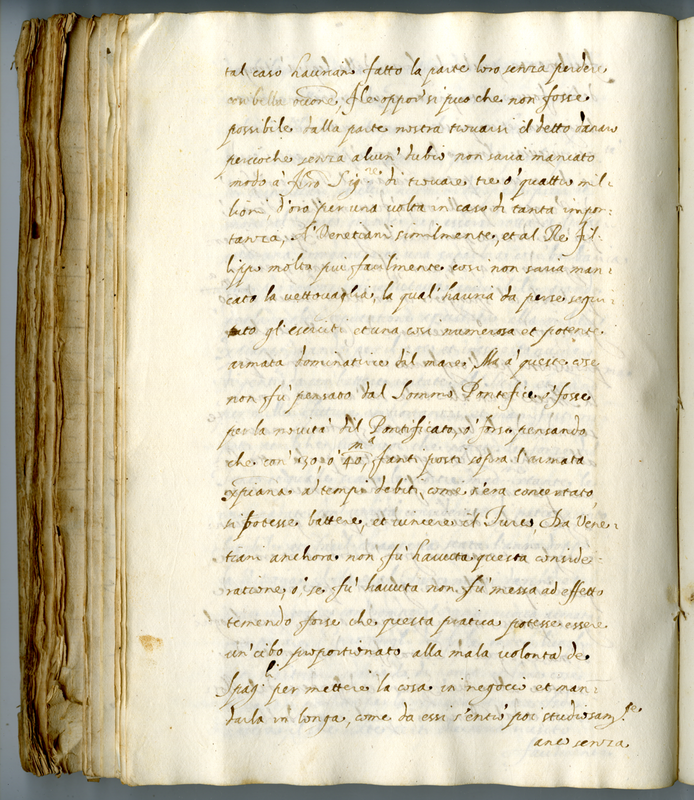 tal caso haurian fatto la parte loro senza perdere
cosi bella occone, Ne oppor si puo che non fosse
possibile dalla parte nostra trovarsi il detto danaro
percioche senza alcun' dubio non saria mancato
modo à N̄ro Sig.re di trovare tre o' quattro mil:
lion' d'oro per una volta in caso di tanta impor:
tanza, A' Venetiani similmente, et al Re Fil:
lippo molto piu facilmente cosi non saria man:
cato la vettovaglia, la qual' hauria da per se segui:
tato gl' eserciti, et una cosi numerosa et potente
armata dominatrice dal mare. Ma à queste cose
non fu' pensato dal Sommo Pontefice ò fosse
per la novita' del Pontificato, o' forse pensando
che con' 30, o' 40.m fanti posti sopra l'armata
xpiana a' tempi debiti, come s'era concertato,
si potesse battere, et vincere il Turco, Da Vene:
tiani anchora non fu' havuta questa conside:
ratione, o' se fu' havuta non fu' messa ad effetto
temendo forse che questa pratica potesse essere
un' cibo proportionato alla mala volonta' de
Spag.li per mettere la cosa in negocio et man:
darla in' longa, come da essi s'entrò poi studiosam.te
ane senza